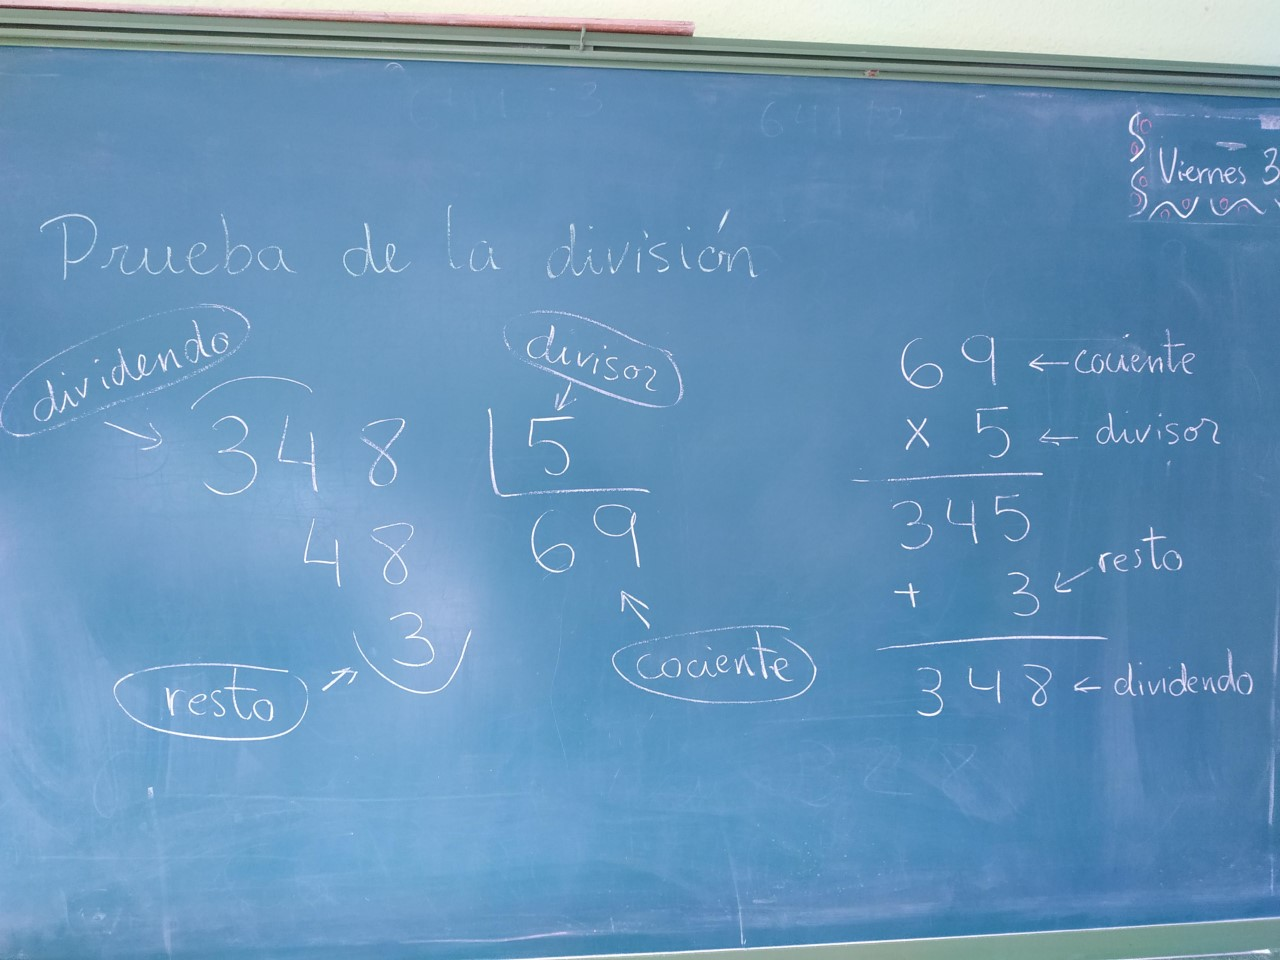 Viernes 3
Prueba de la división
dividendo
divisor
348 5
48 69
3
resto
cociente
69 ← cociente
x 5 ← divisor
345
+ 3 ← resto
348 ← dividendo